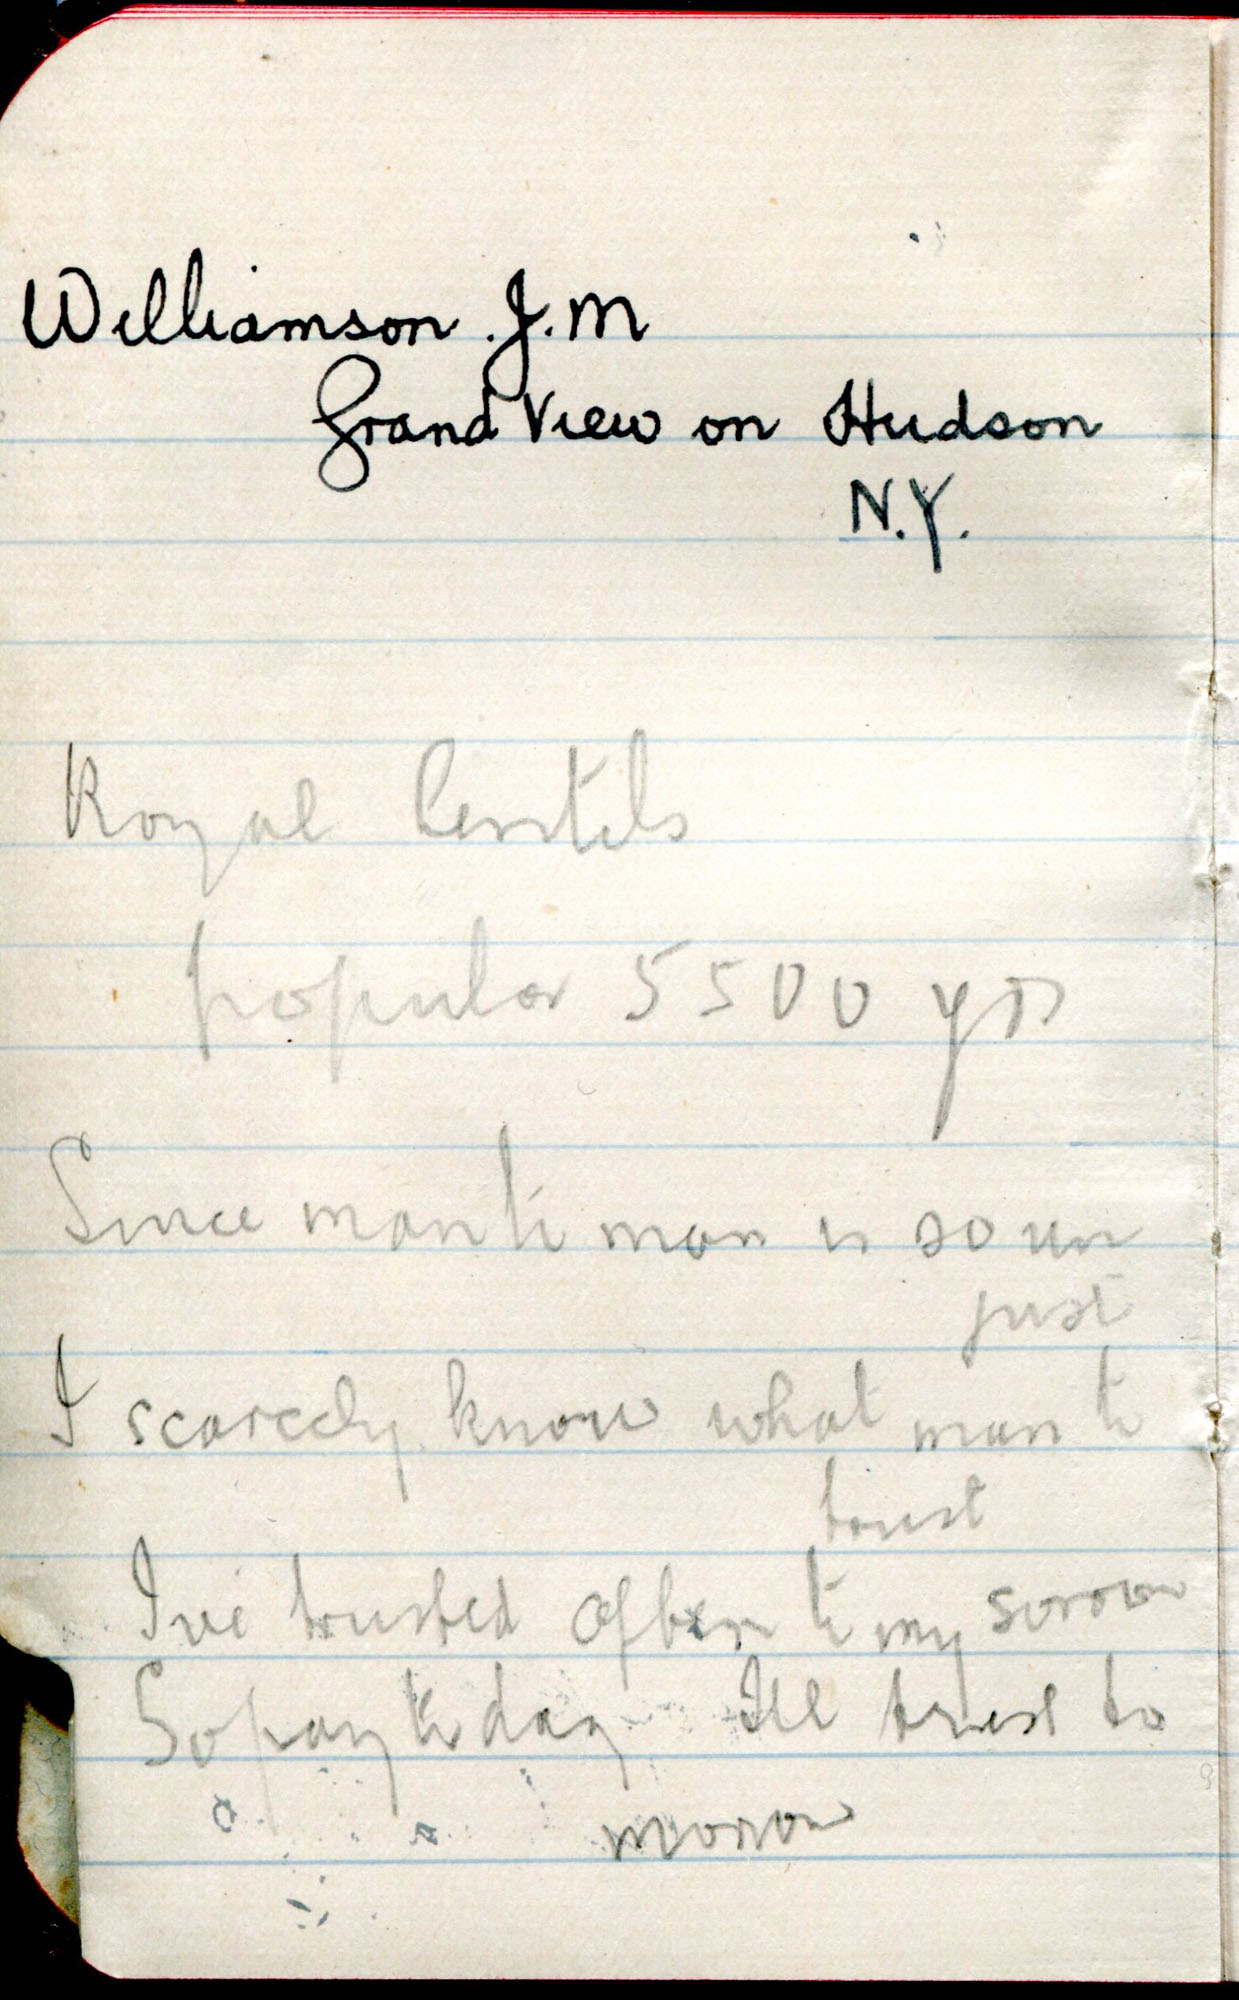 Williamson. J. M
Grand View on Hudson
N.Y.
Royal Lentils
popular 5500 yrs
Since man to man is so un
just
I scarcely know what man to
trust
I've trusted often to my sorrow
So pay to day I'll trust to
morrow